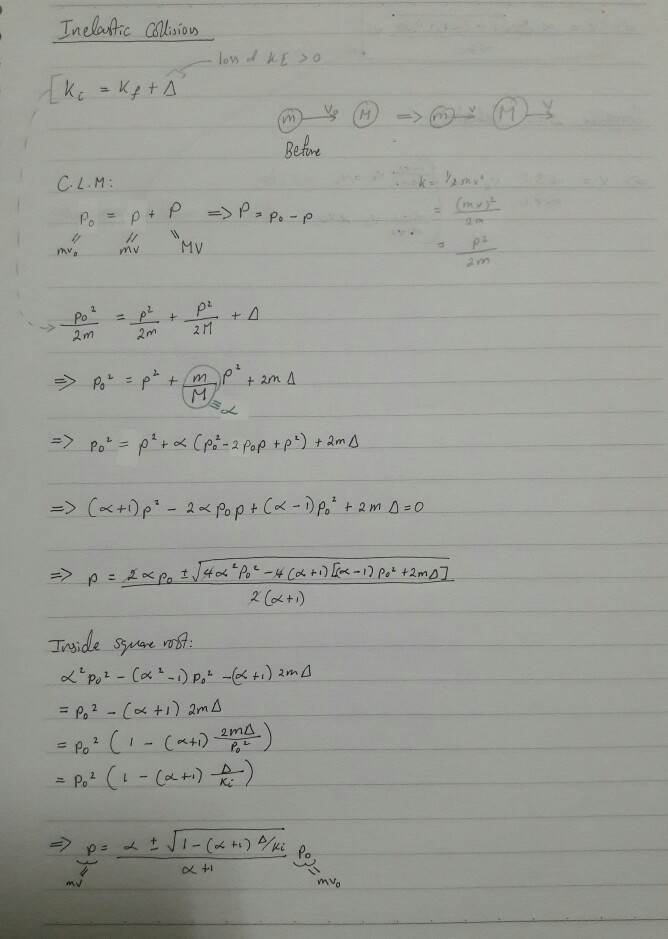 Inelastic Collisions
loss of KE > 0
[ K_i = K_f + Δ
m → v₀ M => m → v M → V
Before
C.L.M:
p₀ = p + P => P = p₀ - p
mv₀ mv MV
k = 1/2 mv²
= (mv)²/2m
= p²/2m
p₀²/2m = p²/2m + P²/2M + Δ
=> p₀² = p² + m/M P² + 2mΔ
≡ α
=> p₀² = p² + α (p₀² - 2p₀p + p²) + 2mΔ
=> (α+1)p² - 2αp₀p + (α-1)p₀² + 2mΔ = 0
=> p = 2αp₀ ± √4α²p₀² - 4(α+1)[(α-1)p₀² + 2mΔ] / 2(α+1)
Inside square root:
α²p₀² - (α²-1)p₀² - (α+1)2mΔ
= p₀² - (α+1)2mΔ
= p₀² (1 - (α+1) 2mΔ/p₀²)
= p₀² (1 - (α+1) Δ/K_i)
=> p = α ± √1-(α+1)Δ/K_i / α+1 p₀
mv mv₀